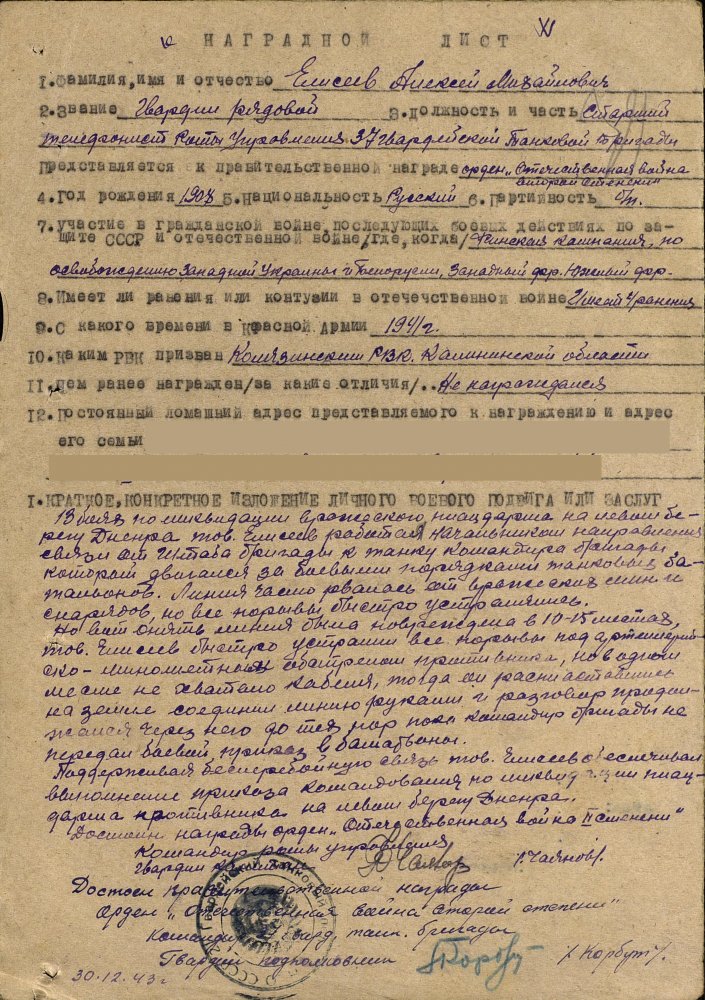 НАГРАДНОЙ ЛИСТ
1.Фамилия,имя и отчество Елисеев Алексей Михайлович
2.Звание Гвардии рядовой 3.Должность и часть Старший
телефонист Роты Управления 37 Гвардейской Танковой Бригады
Представляется к правительственной награде орден „Отечественная война
второй степени"
4.Год рождения 1903 5.Национальность Русский 6.Партийность б/п.
7.участие в гражданской войне,последующих боевых действиях по за-
щите СССР и отечественной войне/где,когда/ Финская кампания, по
освобождению Западной Украины и Белоруссии, Западный фр. Южный фр.
8.Имеет ли ранения или контузии в отечественной войне Имеет 4 ранения
9.С какого времени в Красной Армии 1941 г.
10.Каким РВК призван РВК. Калининской области
11.Чем ранее награжден/за какие отличия/.. Не награждался
12.Постоянный домашний адрес представляемого к награждению и адрес
его семьи
I.КРАТКОЕ,КОНКРЕТНОЕ ИЗЛОЖЕНИЕ ЛИЧНОГО БОЕВОГО ПОДВИГА ИЛИ ЗАСЛУГ
В боях по ликвидации вражеского плацдарма на левом бе-
регу Днепра тов. Елисеев работал начальником направления
связи от Штаба бригады к танку командира бригады
который двигался за боевыми порядками танковых ба-
тальонов. Линия часто рвалась от вражеских мин и
снарядов, но все порывы быстро устранялись.
Но вот опять линия была повреждена в 10-15 местах,
тов. Елисеев быстро устранил все порывы под артиллерий-
ско-минометным обстрелом противника, но в одном
месте не хватало кабеля, тогда он распластавшись
на земле соединил линию руками и разговор продол-
жался через него до тех пор пока командир бригады не
передал боевой приказ в батальоны.
Поддерживая бесперебойную связь тов. Елисеев обеспечивал
выполнение приказа командования по ликвидации плац-
дарма противника на левом берегу Днепра.
Достоин награды орден „Отечественная война II степени"
Командир роты управления
Гвардии /Чаянов/.
Достоен правительственной награды
Орден „Отечественная война второй степени"
Командир гвард. танк. бригады
Гвардии подполковник /Корбут/.
30.12.43 г